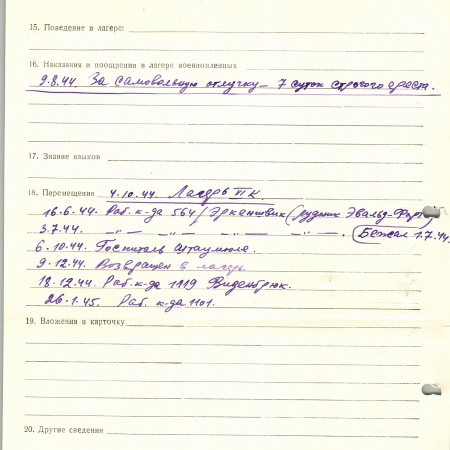 15. Поведение в лагере:
16. Наказания и поощрения в лагере военнопленных
9.8.44. За самовольную отлучку – 7 суток строгого ареста.
17. Знание языков
18. Перемещения 4.10.44. Лагерь VI К.
16.6.44. Раб. к-да 564/Эркеншвик (рудник Эвальд-Форт.)
3.7.44. –„– –„– –„– –„– . (Бежал 1.7.44.
6.10.44. Госпиталь Штаумюле.
9.12.44. Возвращен в лагерь
18.12.44. Раб. к-да 1119 Виденбрюк.
26.1.45. Раб. к-да 1101.
19. Вложения в карточку
20. Другие сведения